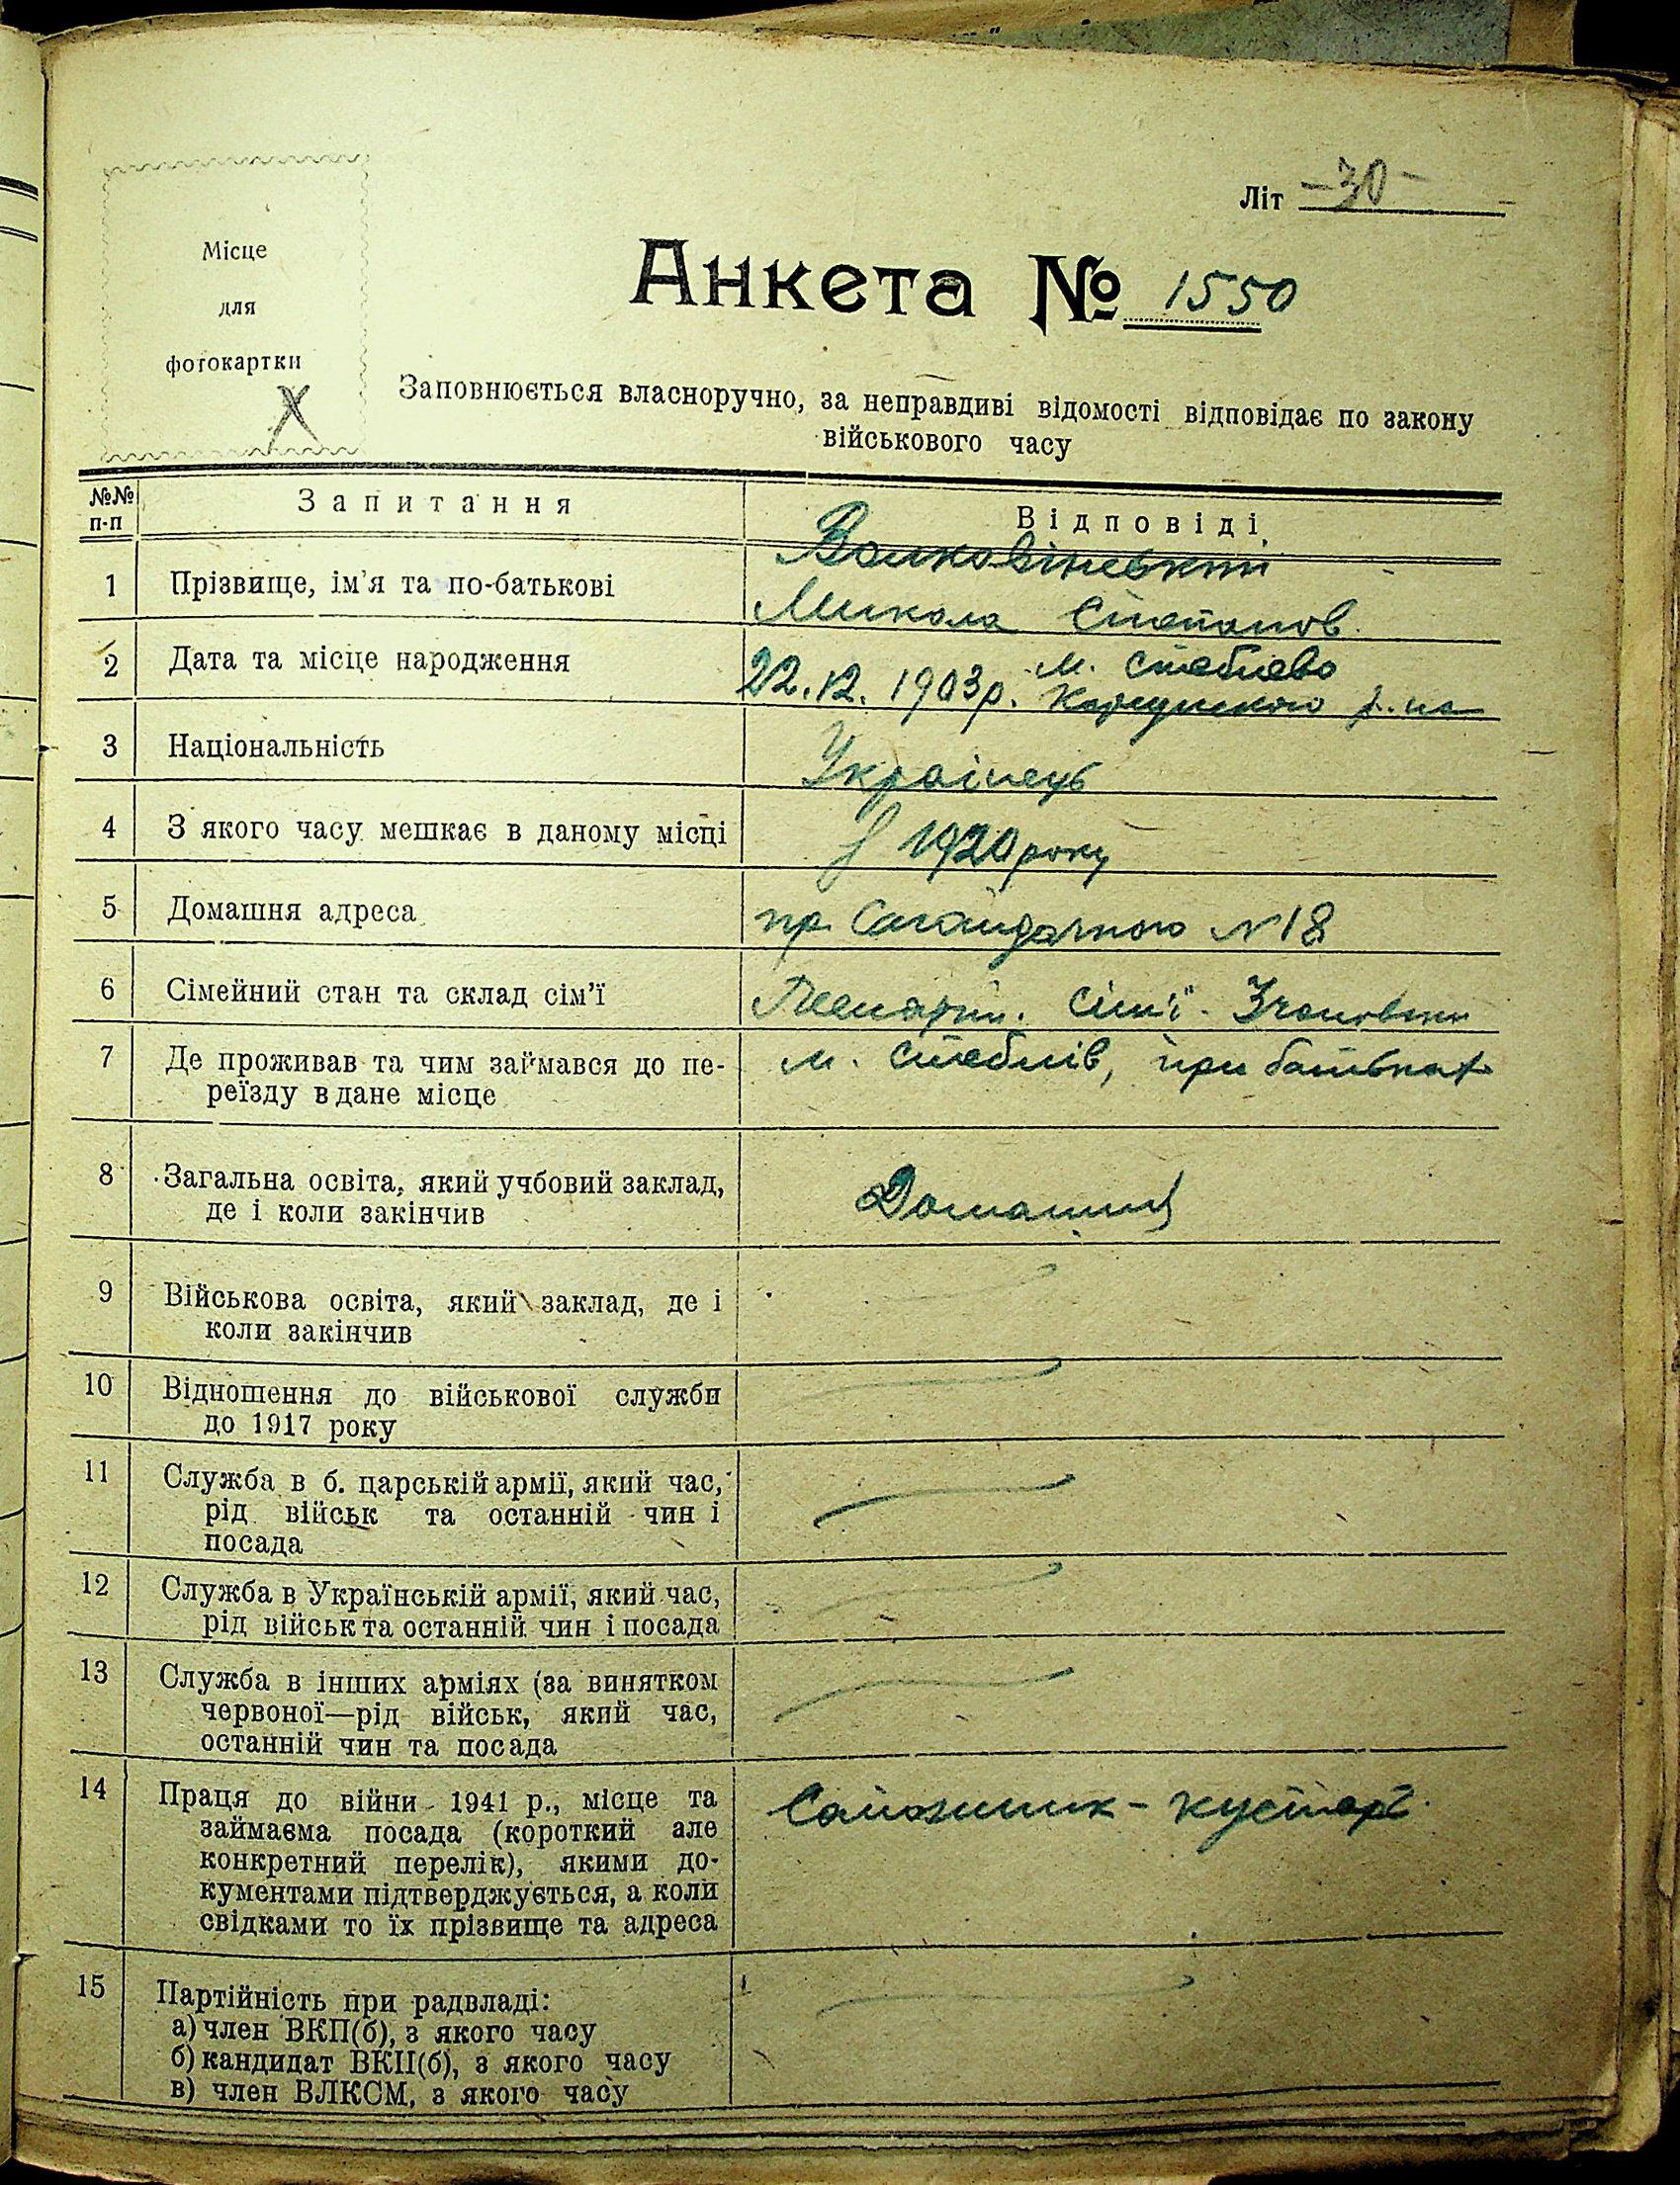 Літ -30-
Місце
для
фотокартки
Х
Анкета № 1550
Заповнюється власноручно, за неправдиві відомості відповідає по закону
військового часу
№№ п-п Запитання Відповіді
1 Прізвище, ім'я та по-батькові
Микола Степанов
2 Дата та місце народження 22.12.1903р. м. Стеблево
Корсунського р-на
3 Національність Українець
4 З якого часу мешкає в даному місці З 1920 року
5 Домашня адреса пр. Сагайдачного №18
6 Сімейний стан та склад сім'ї сім'ї
7 Де проживав та чим займався до пе- м. Стеблів, при батьках
реїзду в дане місце
8 Загальна освіта, який учбовий заклад, Домашня
де і коли закінчив
9 Військова освіта, який заклад, де і
коли закінчив
10 Відношення до військової служби
до 1917 року
11 Служба в б. царській армії, який час,
рід військ та останній чин і
посада
12 Служба в Українській армії, який час,
рід військ та останній чин і посада
13 Служба в інших арміях (за винятком
червоної—рід військ, який час,
останній чин та посада
14 Праця до війни 1941 р., місце та Сапожник - кустарь
займаєма посада (короткий але
конкретний перелік), якими до-
кументами підтверджується, а коли
свідками то їх прізвище та адреса
15 Партійність при радвладі:
а) член ВКП(б), з якого часу
б) кандидат ВКП(б), з якого часу
в) член ВЛКСМ, з якого часу